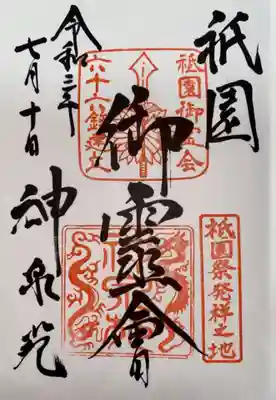 祇園
祇園御霊会
六十六鉾建立
御靈會
祇園祭発祥之地
令和三年
七月十日
神泉苑